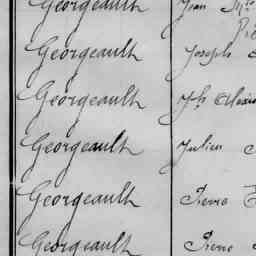 Georgeault Jean M
Pie
Georgeault Joseph
Georgeault Jph Alexis
Georgeault Julien
Georgeault Pierre
Georgeault Pierre